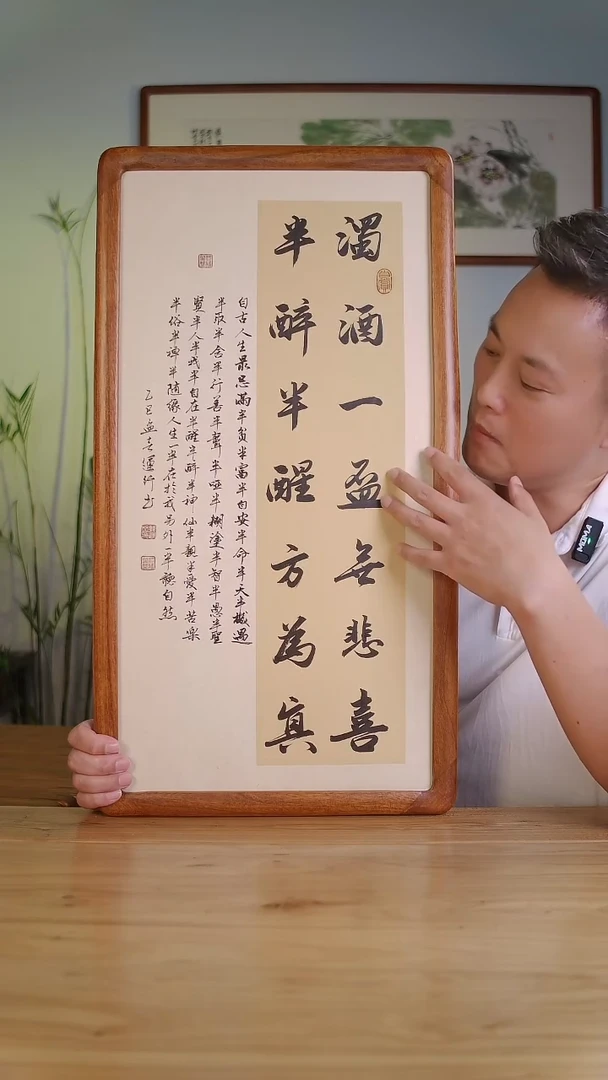 濁酒一盃無悲喜
半醉半醒方為真
自古人生最忌滿半貧半富半自安半命半天半機遇
半取半舍半行善半聾半啞半糊塗半智半愚半聖
賢半人半我半自在半醒半醉半神仙半親半愛半苦樂
半俗半禪半隨緣人生一半在於我另外一半聽自然
乙巳
書
MOMA